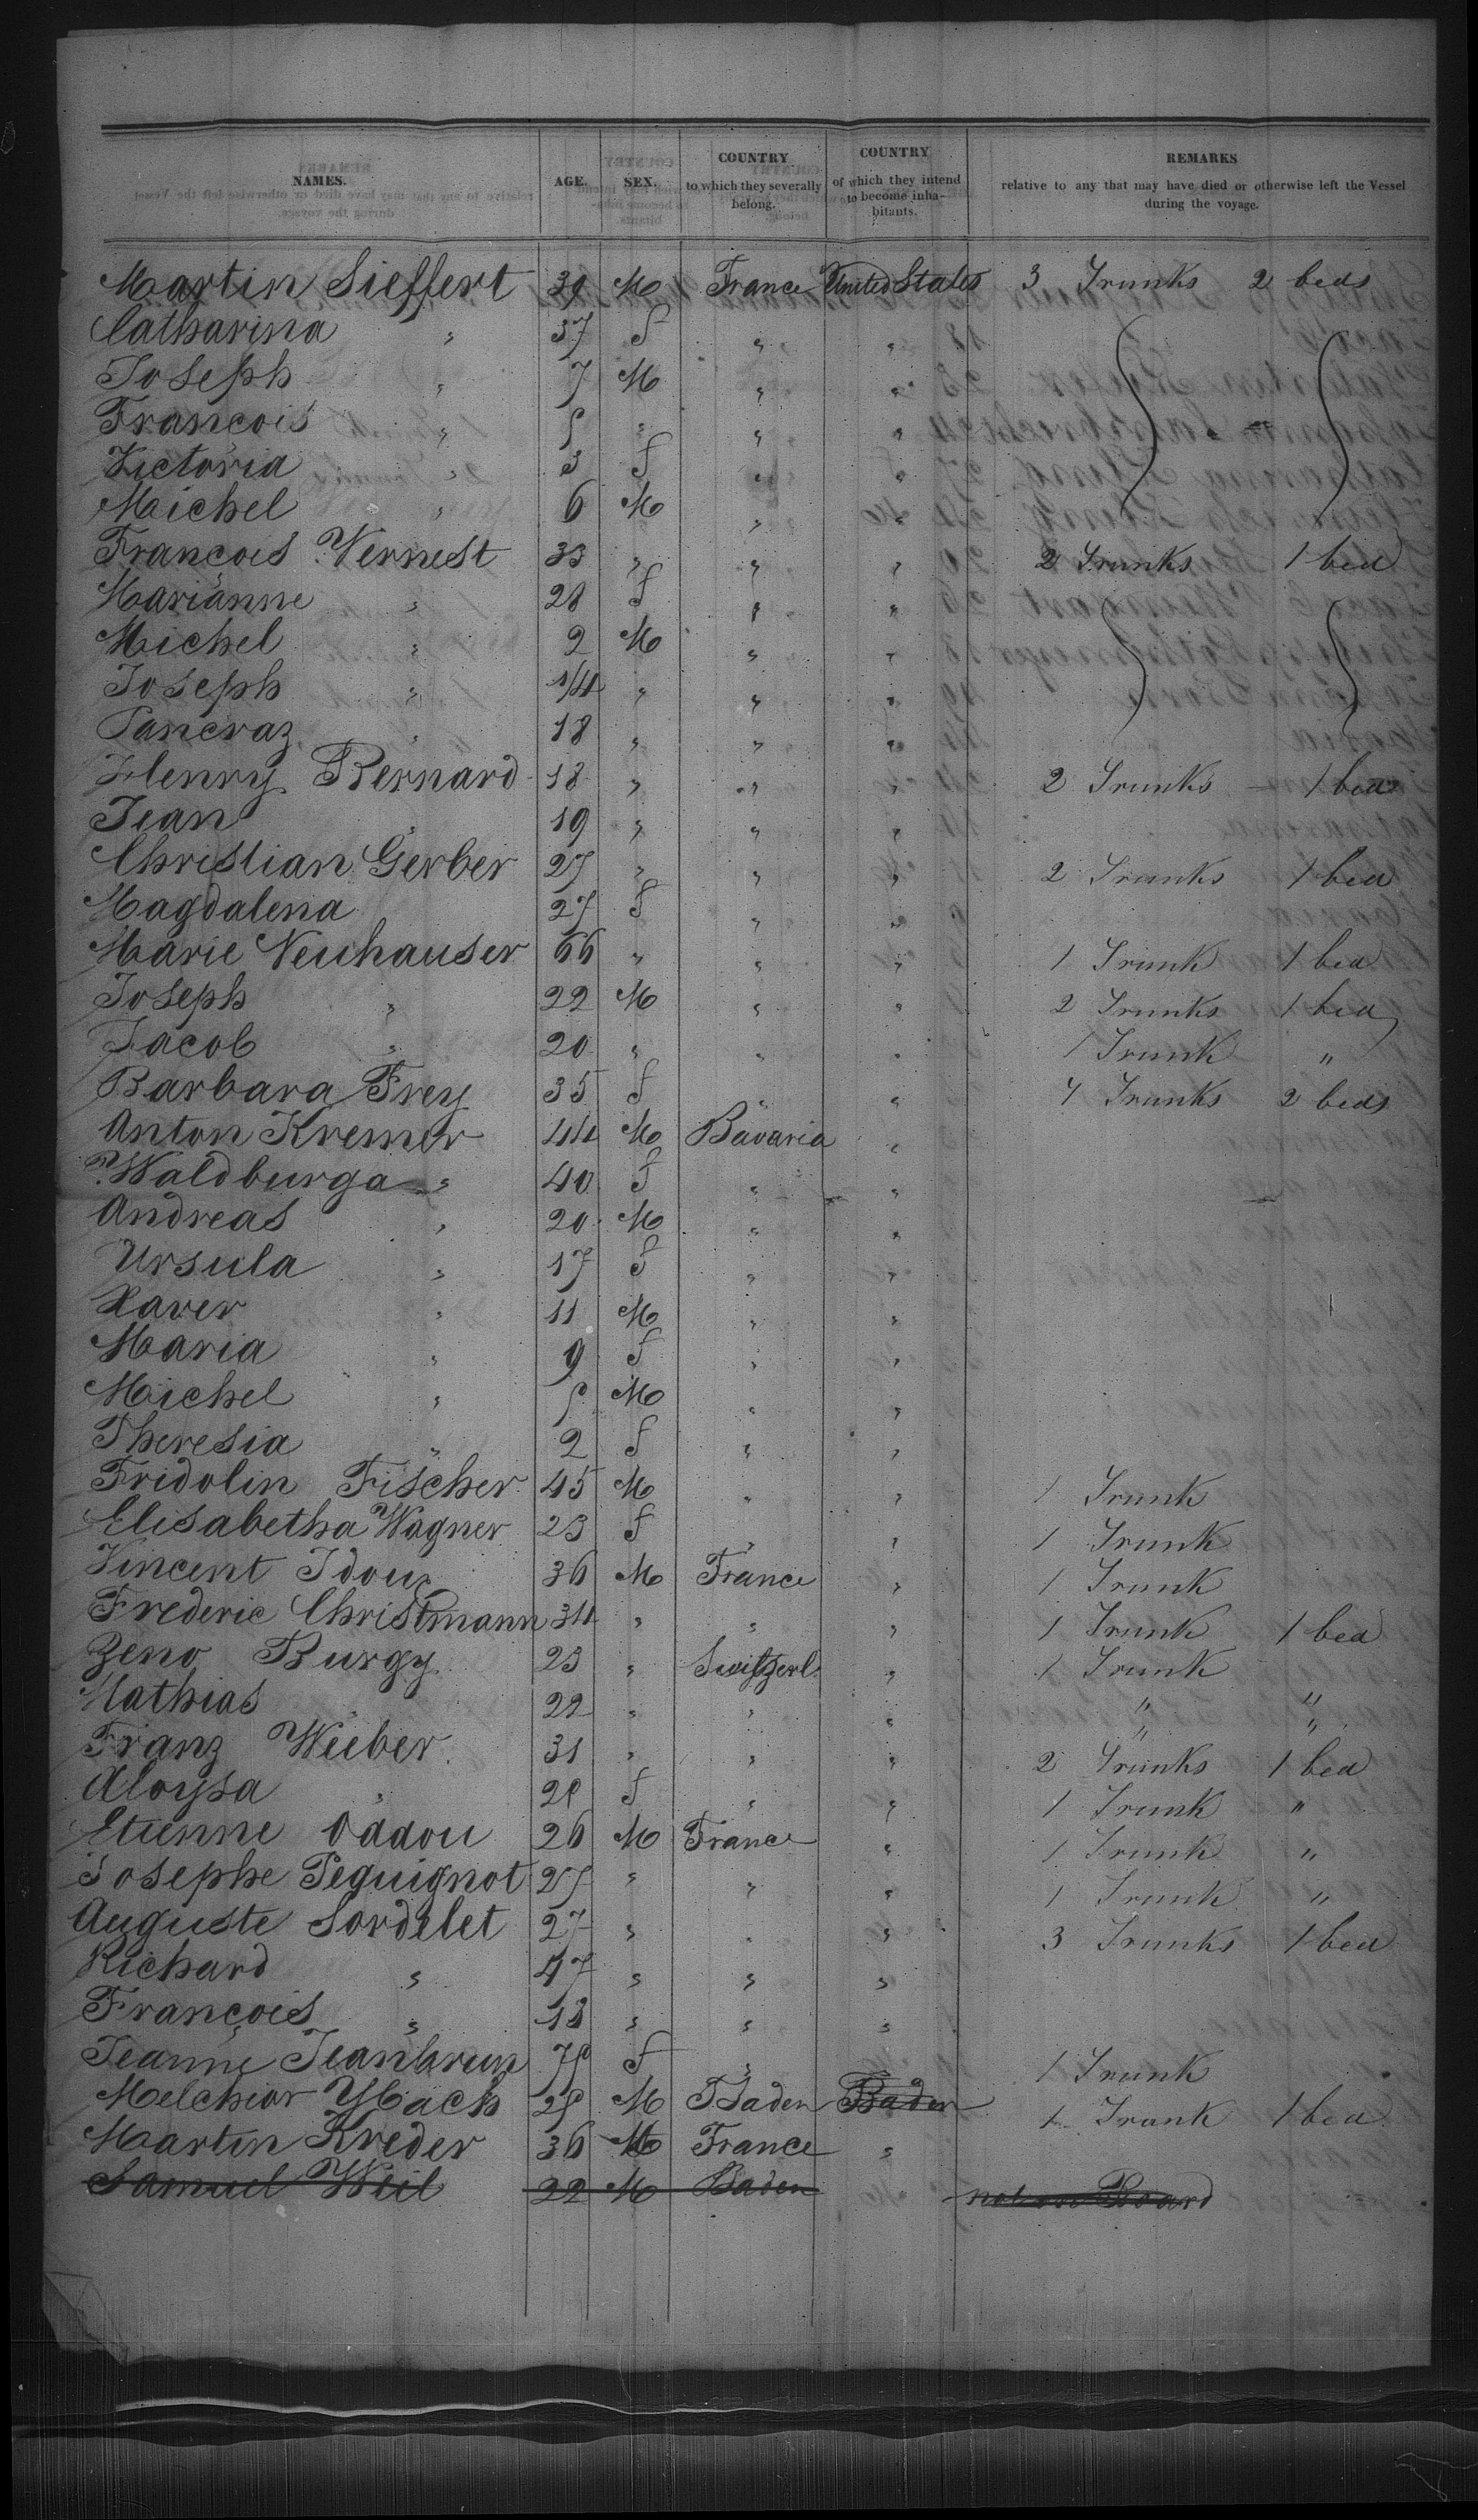 NAMES. AGE. SEX. COUNTRY to which they severally belong. COUNTRY of which they intend to become inhabitants. REMARKS relative to any that may have died or otherwise left the Vessel during the voyage.
Martin Sieffert 39 M France United States 3 Trunks 2 beds
Catharina " 37 f " "
Joseph " 7 M " "
Francois " 5 " " "
Victoria " 3 f " "
Michel " 6 M " "
Francois Vernest 33 " " " 2 Trunks 1 bed
Marianne " 28 f " "
Michel " 2 M " "
Joseph " 1/4 " " "
Pancraz " 18 " " "
Henry Bernard 18 " " " 2 Trunks 1 bed
Jean " 19 " " "
Christian Gerber 27 " " " 2 Trunks 1 bed
Magdalena 27 f " "
Marie Neuhauser 66 " " " 1 Trunk 1 bed
Joseph " 22 M " " 2 Trunks 1 bed
Jacob " 20 " " " 1 Trunk "
Barbara Frey 35 f " " 4 Trunks 2 beds
Anton Kremer 44 M Bavaria "
Waldburga " 40 f " "
Andreas " 20 M " "
Ursula " 17 f " "
Xaver " 11 M " "
Maria " 9 f " "
Michel " 5 M " "
Theresia " 2 f " "
Fridolin Fischer 45 M " " 1 Trunk
Elisabetha Wagner 23 f " " 1 Trunk
Vincent Idoux 36 M France " 1 Trunk
Frederic Christmann 34 " " " 1 Trunk 1 bed
Zeno Burgy 23 " Switzerl. " 1 Trunk
Mathias " 22 " " " " "
Franz Wieber 31 " " " 2 Trunks 1 bed
Aloysa " 25 f " " 1 Trunk "
Etienne Dadou 26 M France " 1 Trunk "
Josephe Peguignot 27 " " " 1 Trunk "
Auguste Sordelet 27 " " " 3 Trunks 1 bed
Richard " 47 " " "
Francois " 18 " " "
Jeanne Jeanbrun 75 f " 1 Trunk
Melchior Ybach 25 M Baden Baden 1 Trunk 1 bed
Martin Kreder 36 M France "
Samuel Weil 22 M Baden not on Board